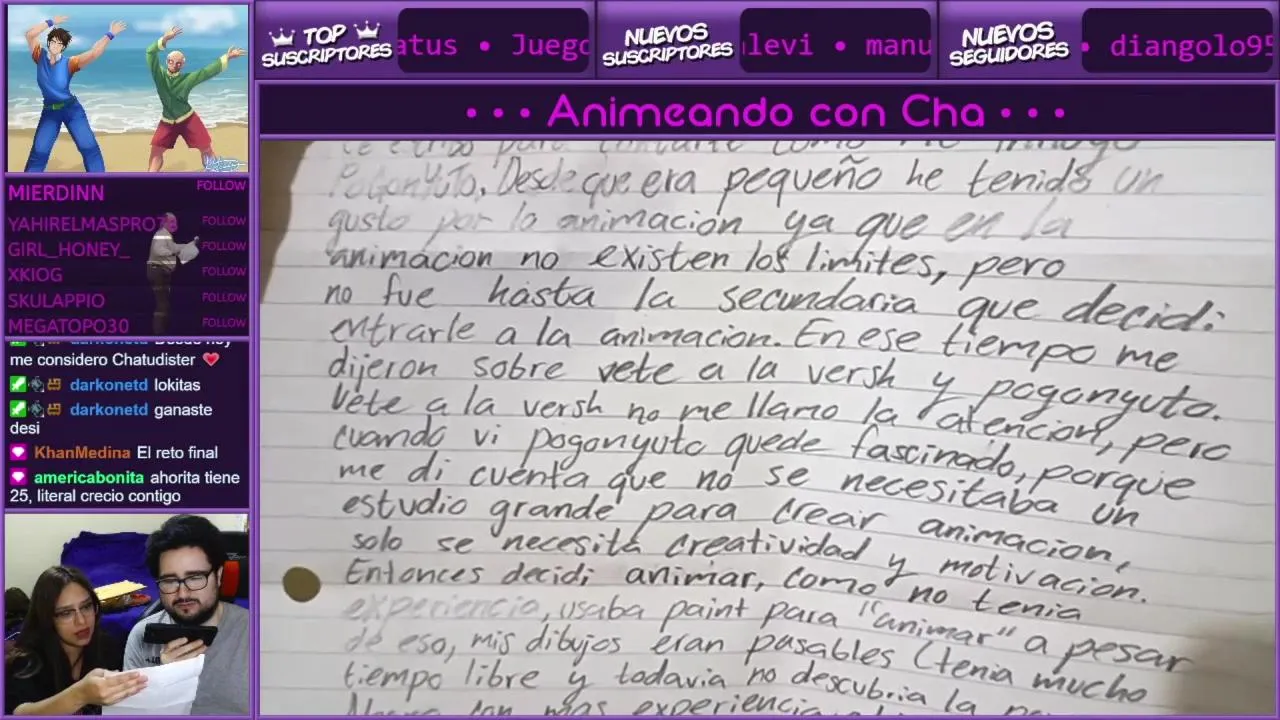 TOP SUSCRIPTORES
atus • Juego
NUEVOS SUSCRIPTORES
levi • manu
NUEVOS SEGUIDORES
• diangolo95
• • • Animeando con Cha • • •
MIERDINN FOLLOW
YAHIRELMASPRO78 FOLLOW
GIRL_HONEY_ FOLLOW
XKIOG FOLLOW
SKULAPPIO FOLLOW
MEGATOPO30 FOLLOW
darkonetd Desde hoy
me considero Chatudister ❤️
darkonetd lokitas
darkonetd ganaste
desi
KhanMedina El reto final
americabonita ahorita tiene
25, literal crecio contigo
te escribo para contarte como me
PoganYuto, Desde que era pequeño he tenido un
gusto por la animacion ya que en la
animacion no existen los limites, pero
no fue hasta la secundaria que decidi
entrarle a la animacion. En ese tiempo me
dijeron sobre vete a la versh y poganyuto.
Vete a la versh no me llamo la atencion, pero
cuando vi poganyuto quede fascinado, porque
me di cuenta que no se necesitaba un
estudio grande para crear animacion,
solo se necesita creatividad y motivacion.
Entonces decidi animar, como no tenia
experiencia, usaba paint para "animar" a pesar
de eso, mis dibujos eran pasables (tenia mucho
tiempo libre y todavia no descubria la
con mas experiencia